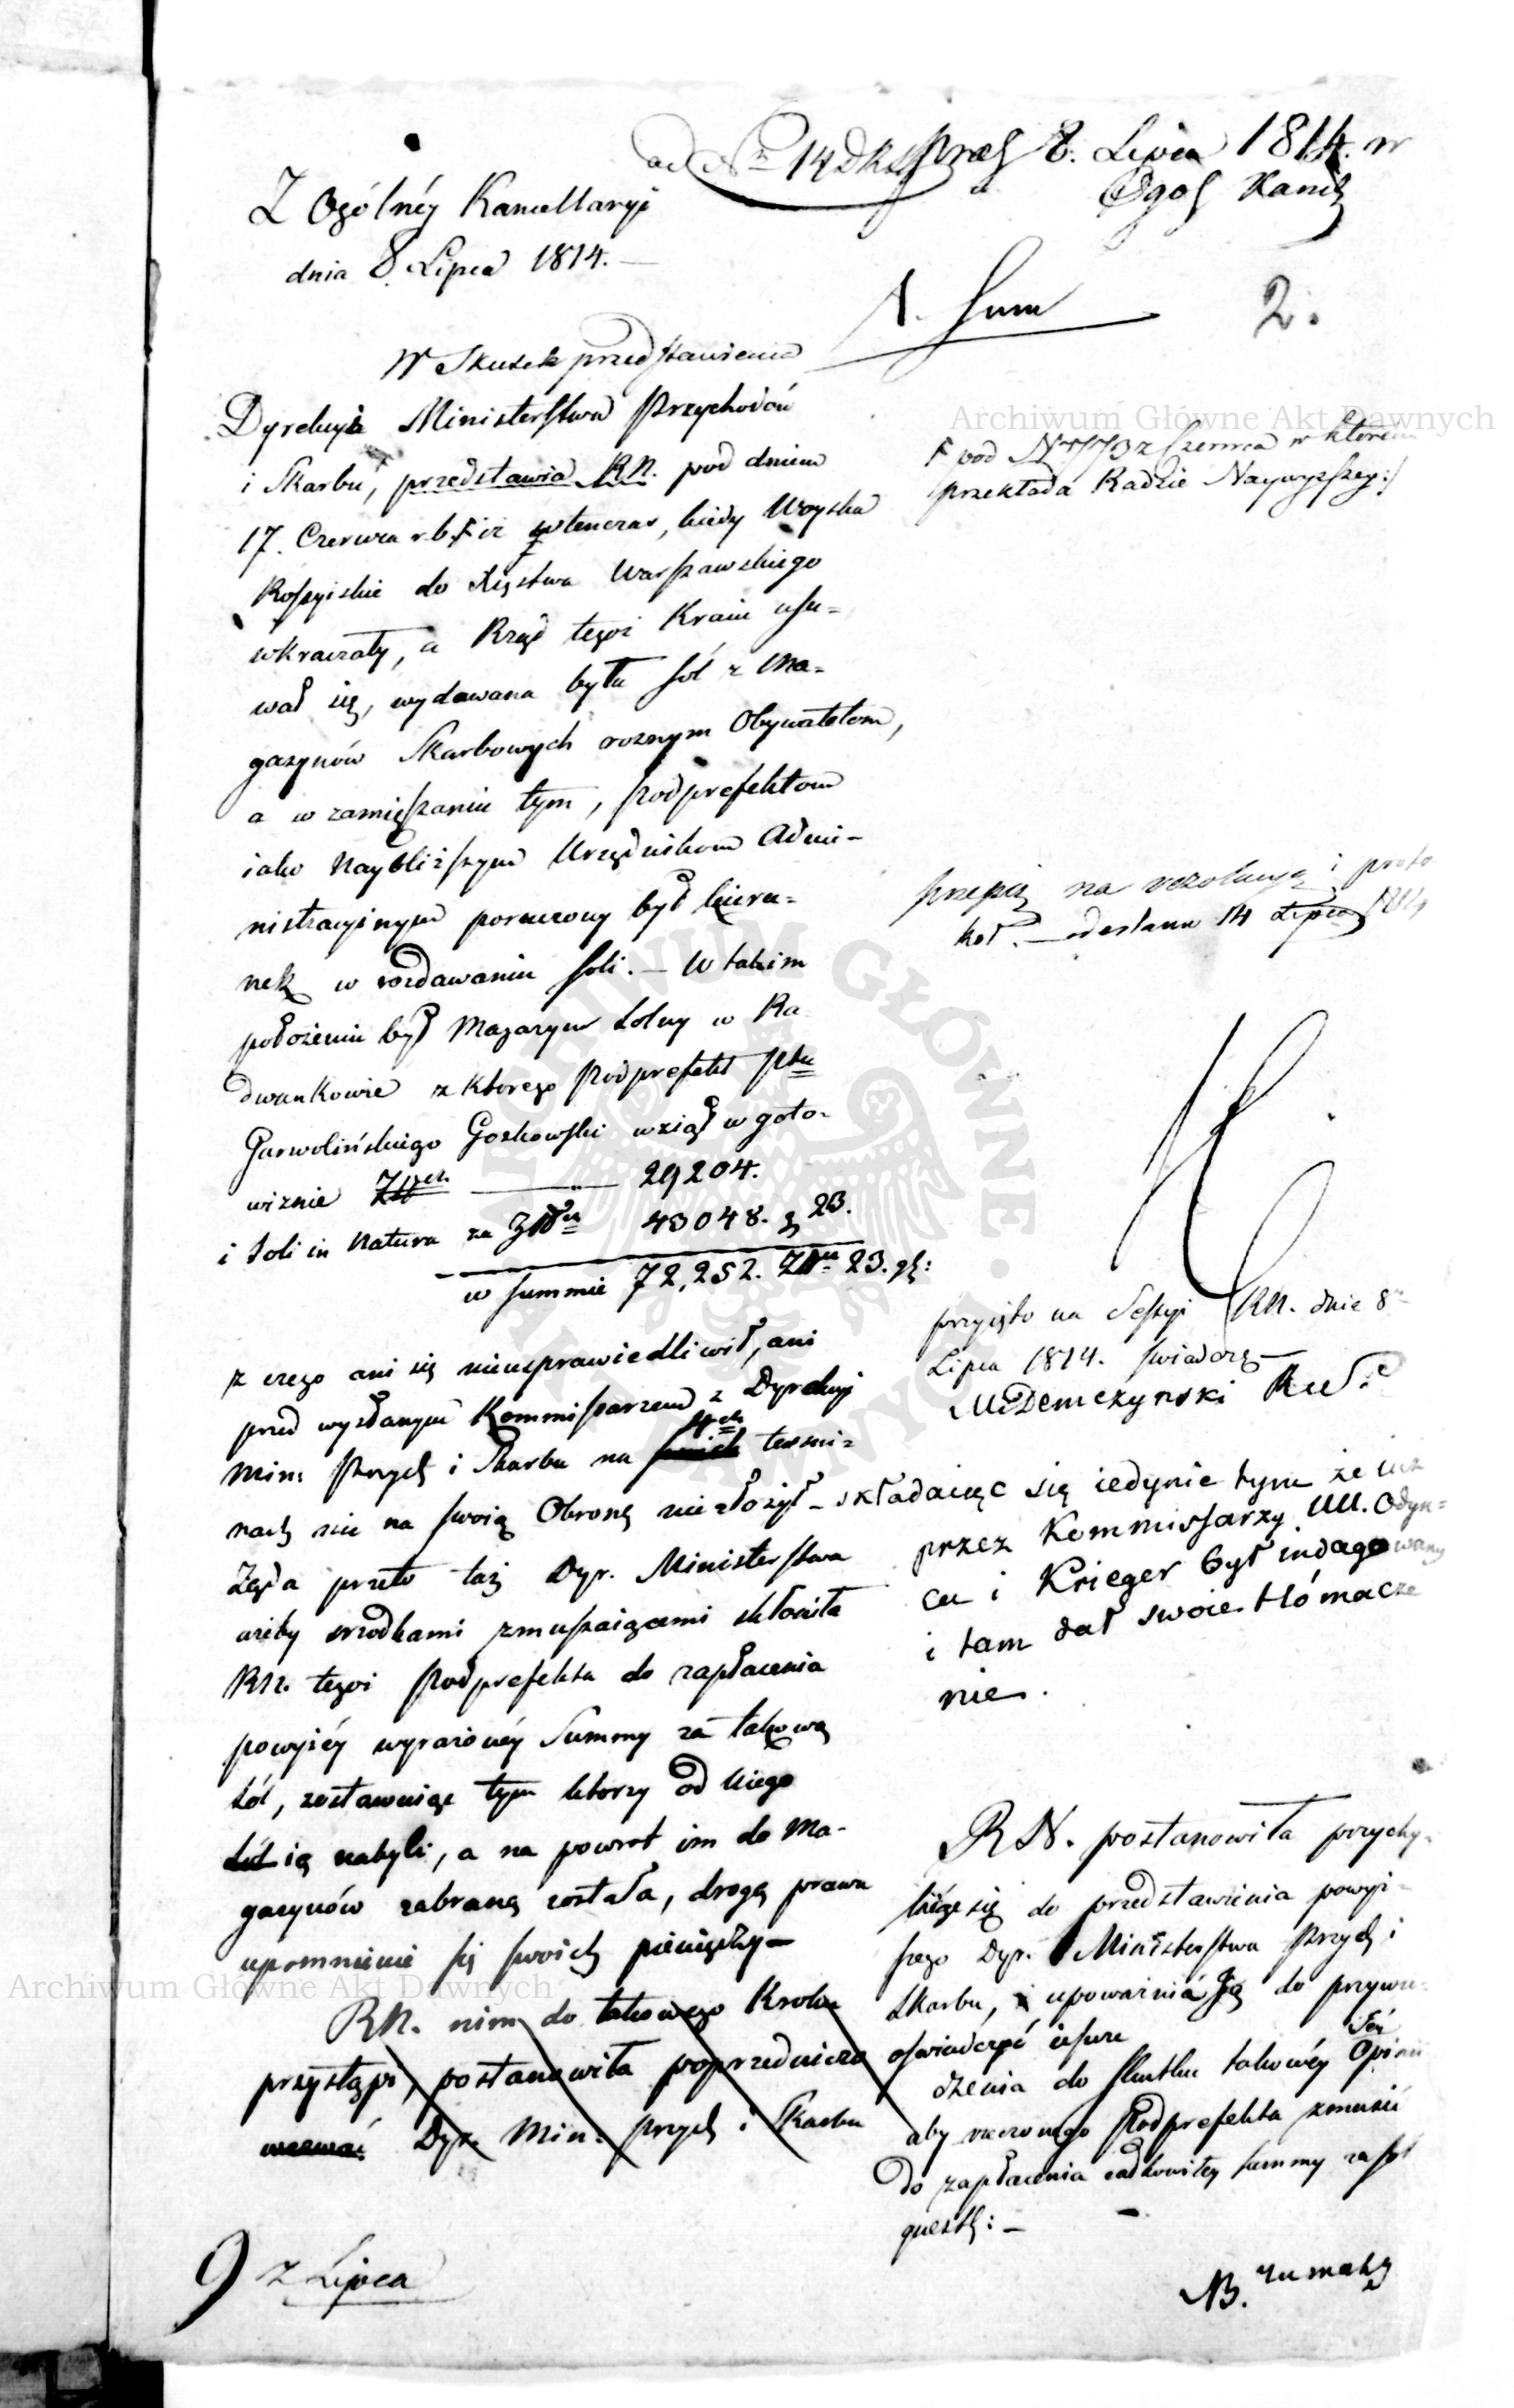 ad Nr 14 præs 8. Lipca 1814. w
Ogol Kanc
Z Ogólnéy Kancellaryi
dnia 8. Lipca 1814. —
A. Sum
2.
W Skutek przedstawienia
Dyrekcyia Ministerstwa Przychodów
i Skarbu, przedstawia RN. pod dniem
17. Czerwca r.b. iż wtenczas, kiedy Woyska
Rossyiskie do Xięstwa Warszawskiego
wkraczały, a Rząd tegoż Kraiu usu=
wał się, wydawana była sól z Ma=
gazynów Skarbowych roznym Obywatelom,
a w zamięszaniu tym, Podprefektom
iako Naybliższym Urzędnikom Admi=
nistracyinym poruczony był kieru=
nek w rozdawaniu soli. — W takim
położeniu był Magazyn Solny w Ra
dwankowie z ktorego Podprefekt Ptu
Garwolińskiego Goskowski wziął w goto=
wiznie Złych — 29204.
i Soli in Natura za Złł 43048. g 23.
w summie 72,252. Zł 23. gr:
z czego ani się nieusprawiedliwił, ani
przed wysłanym Kommissarzem z Dyrekcyi
Min: Przych i Skarbu na 4ech termi=
nach nic na swoią Obronę niezłożył —
Żąda przeto taż Dyr. Ministerstwa
ażeby srzodkami zmuszaiącemi skłoniła
RN. tegoż Podprefekta do zapłacenia
powyżéy wyrażonéy Summy za takową
Sól, zostawuiąc tym ktorzy od Niego
Sól ią nabyli, a na powrot im do Ma=
gazynów zabraną została, drogę prawa
upomnienie się swoich pieniędzy —
RN. nim do takowego Kroku
przystąpi, postanowiła poprzedniczo
wezwać Dyr. Min: Przych i Skarbu
9 z Lipca
Archiwum Główne Akt Dawnych
pod Nr 5793 z Czerwca w ktorem
przekłada Radzie Naywyższey:/
przepis na rezolucyą i proto
koł. — odesłano 14 Lipca 1814
przyięto na Sessyi RN. dnia 8
Lipca 1814. swiadczę —
M. Demczynski
składaiąc się iedynie tym że iuż
przez Kommissarzy UU. Odyn=
ca i Krieger był indagowany
i tam dał swoie tłómacze
nie.
RN. postanowiła przychy=
laiąc się do przedstawienia powyż=
szego Dyr. Ministerstwa Przych i
Skarbu, upoważnia Ją do przywie=
oswiadczyć
dzenia do skutku takowéy Opinii
aby rzeczonego Podprefekta zmusić
do zapłacenia całkowitey summy za sól
quest:
Archiwum Główne Akt Dawnych
ARCHIWUM GŁÓWNE AKT DAWNYCH